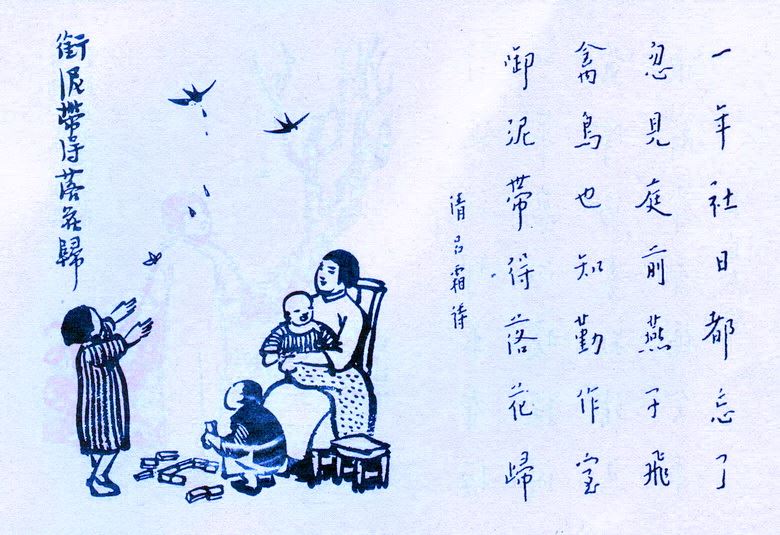 一年社日都忘了
忽見庭前燕子飛
禽鳥也知勤作室
啣泥帶得落花歸
清呂霜詩
銜泥帶得落花歸